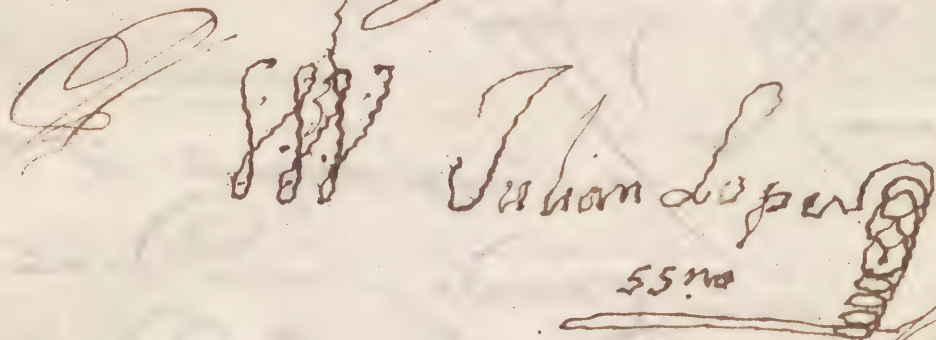 Julian Lopez
ssno